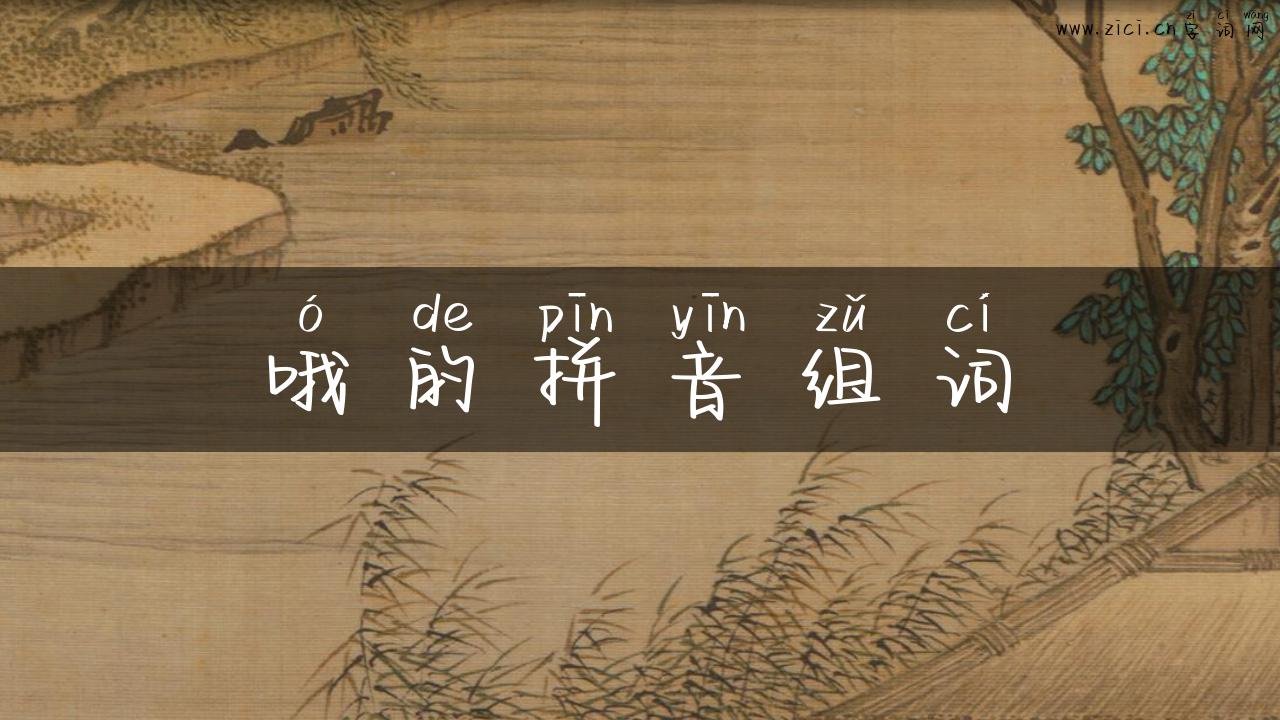 zì cí wǎng
www.zici.cn 字词网
ó de pīn yīn zǔ cí
哦的拼音组词